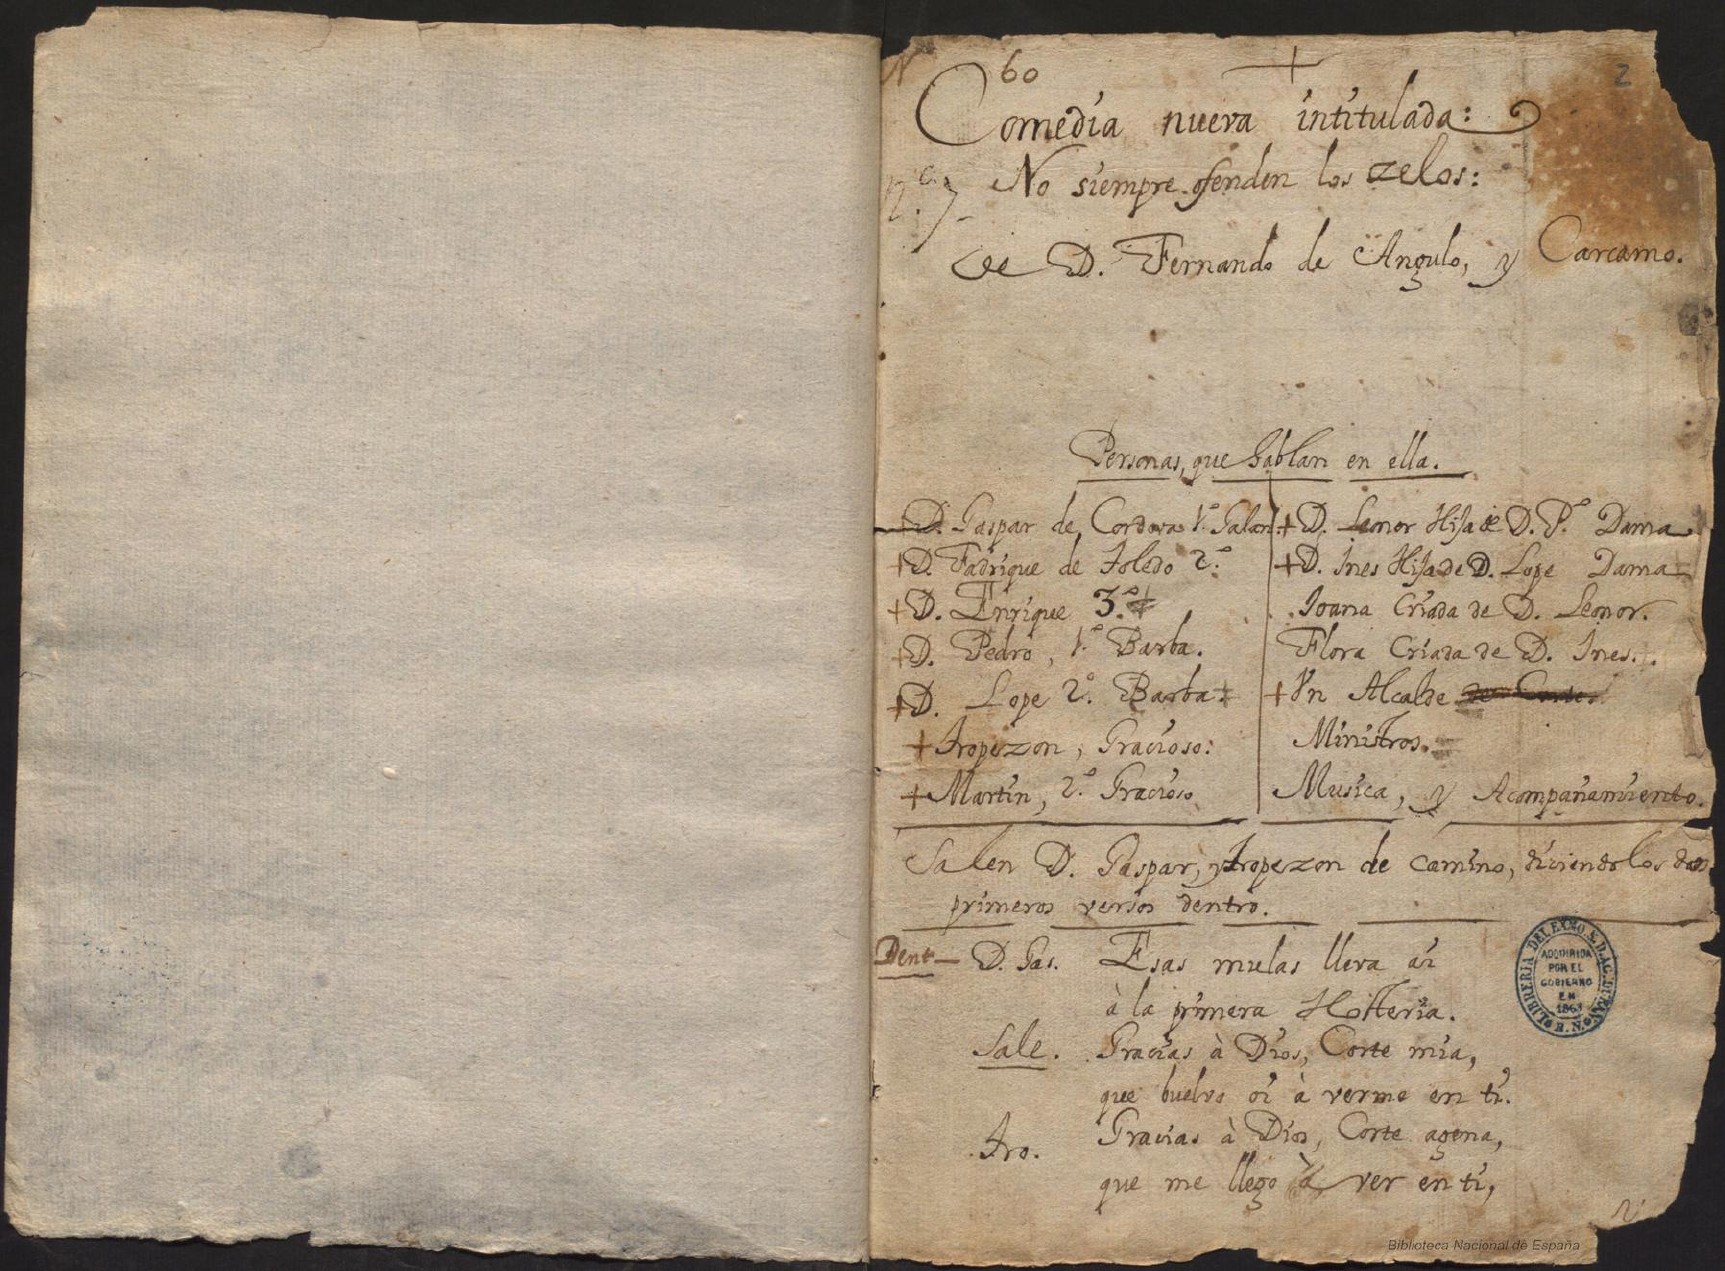 60
2
Comedia nueva intitulada:
nº 7
No siempre ofenden los zelos:
de D. Fernando de Angulo, y Carcamo.
Personas, que hablan en ella.
+ D. Gaspar de Cordova 1º Galan.
+ D. Fadrique de Toledo 2º.
+ D. Enrique 3º.
+ D. Pedro, 1º Barba.
+ D. Lope 2º. Barba.
+ Tropezon, Gracioso:
+ Martin, 2º. Gracioso
+ D. Leonor Hija de D. Pº Dama
+ D. Ines Hija de D. Lope Dama
Ioana Criada de D. Leonor.
Flora Criada de D. Ines.
+ Vn Alcalde
Ministros.
Musica, y Acompañamiento.
Salen D. Gaspar, y tropezon de camino, diciendo los dos
primeros versos dentro.
Dent- D. Gas. Esas mulas lleva ai
à la primera Hosteria.
Sale. Gracias à Dios, Corte mia,
que buelvo oi à verme en ti.
Tro. Gracias à Dios, Corte agena,
que me llego à ver en ti,
LIBRERIA DEL EXMO. S. D. AG. DURAN. B. N.
ADQUIRIDA
POR EL
GOBIERNO
EN
1863
Biblioteca Nacional de España